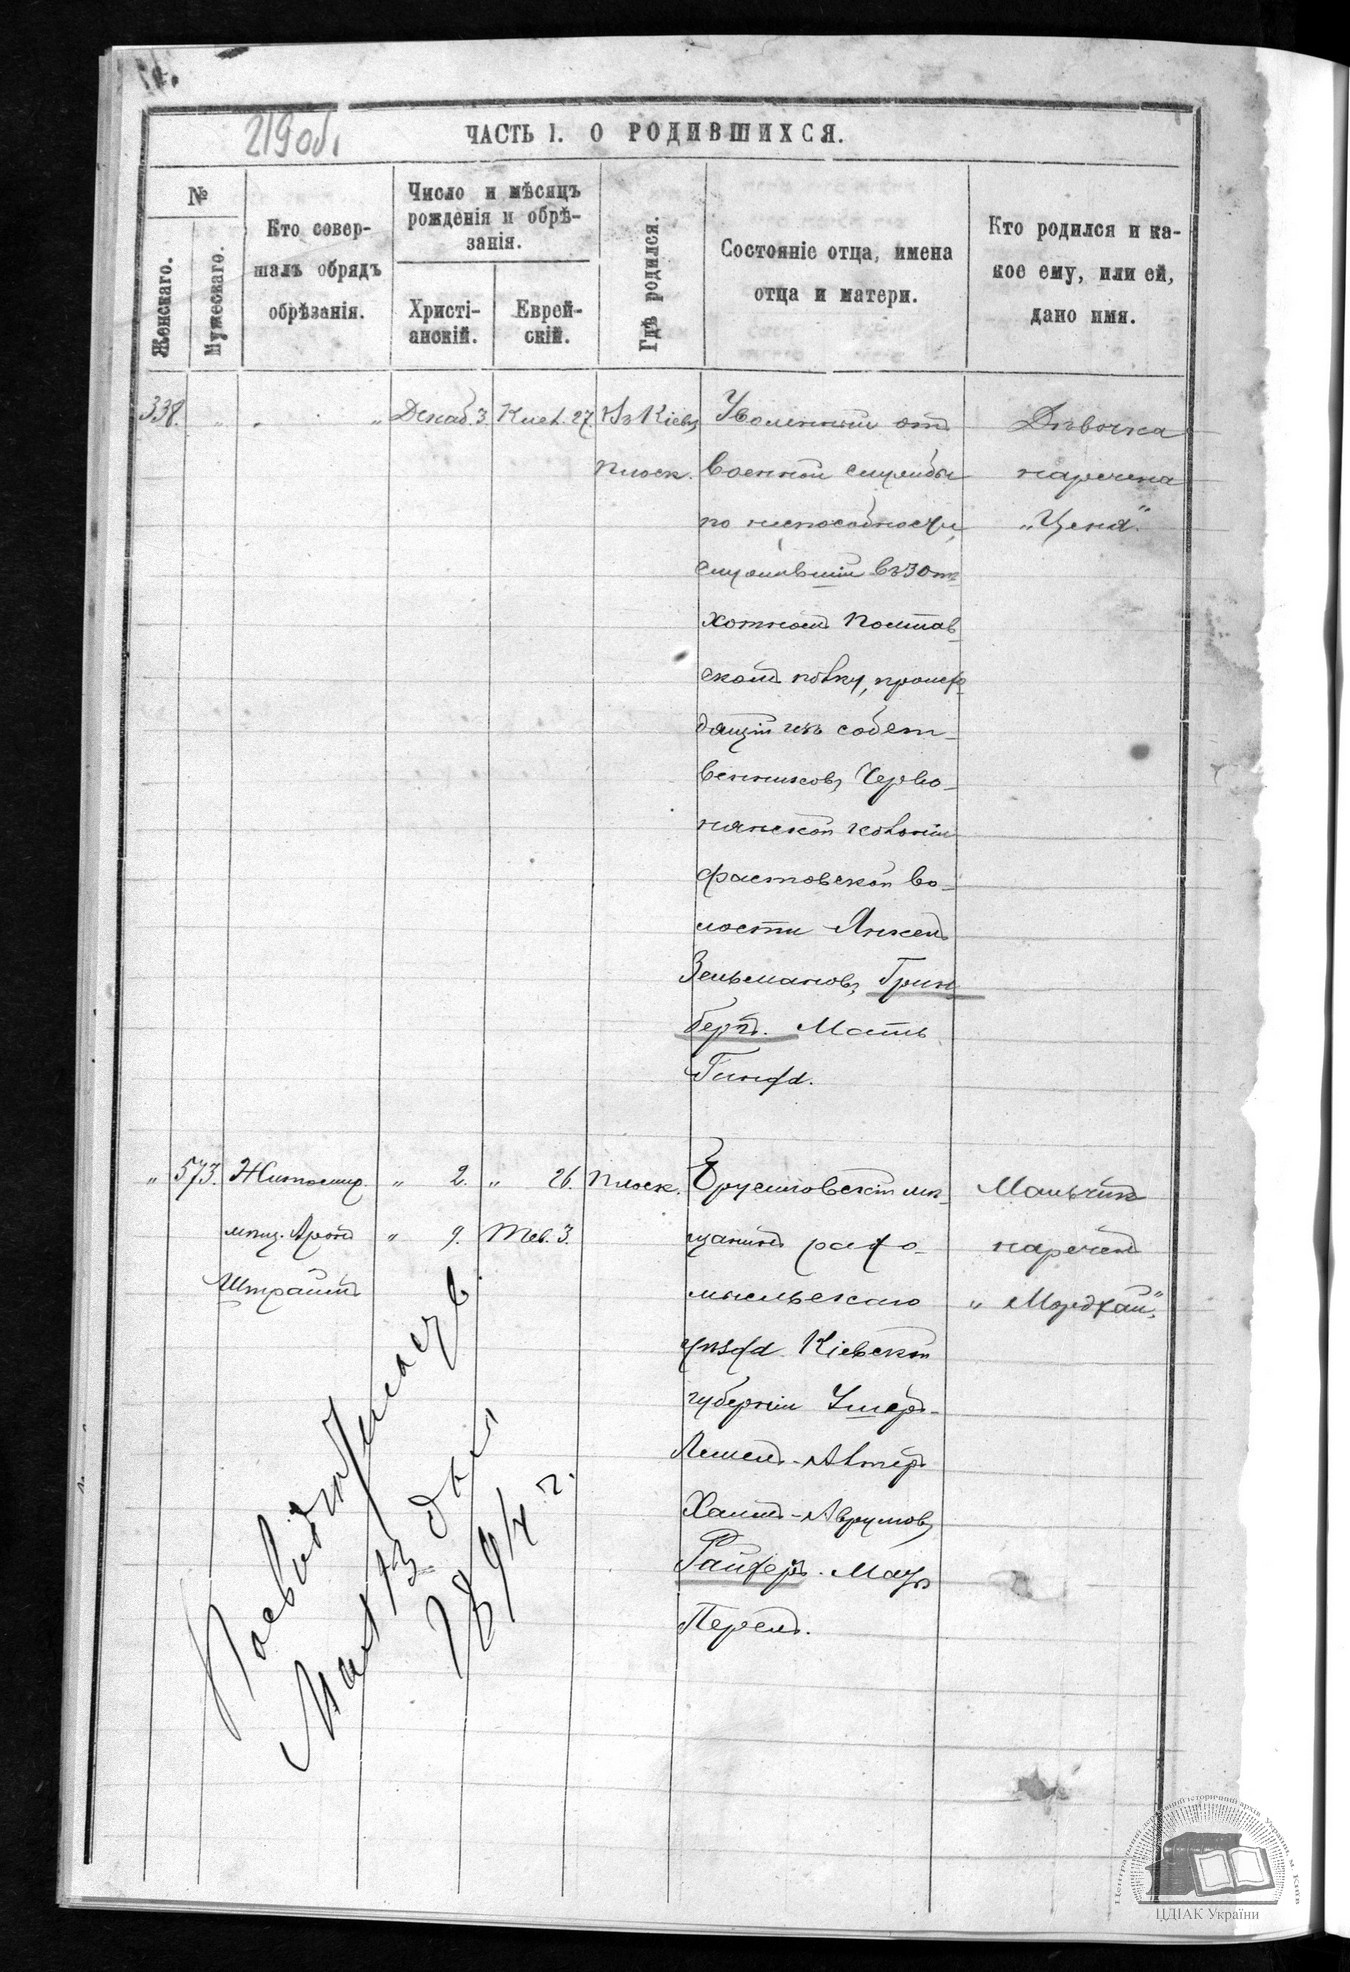 219 об.
ЧАСТЬ I. О РОДИВШИХСЯ.
№
Женскаго.
Мужескаго.
Кто совер-
шалъ обрядъ
обрѣзанія.
Число и мѣсяцъ
рожденія и обрѣ-
занія.
Христі-
анскій.
Еврей-
скій.
Гдѣ родился.
Состояніе отца, имена
отца и матери.
Кто родился и ка-
кое ему, или ей,
дано имя.
338. " " " Декаб. 3. Кисл. 27. Въ Кіевѣ
Плоск.
Уволенный отъ
военной службы
по неспособности,
служившій въ 30 пѣ-
хотномъ Полтав-
скомъ полку, происхо-
дящій изъ собст-
венниковъ Черво-
нянской колоніи
Фастовской во-
лости Янкель
Зельмановъ Грин-
бергъ. Мать
Гинда.
Дѣвочка
наречена
„Ценя“.
" 573. Житомир.
мѣщ. Аронъ
Штраймъ
" 2. " 26. Плоск.
" 9. Тев. 3.
Брусиловскій мѣ-
щанинъ радо-
мысльскаго
уѣзда Кіевской
губерніи Ушеръ-
Лемель-Алтеръ
Хаимъ-Аврумовъ
Райферъ. Мать
Перель.
Мальчикъ
нареченъ
„Мордхай“.
Мая 13 дня
1894 г.
ЦДІАК України